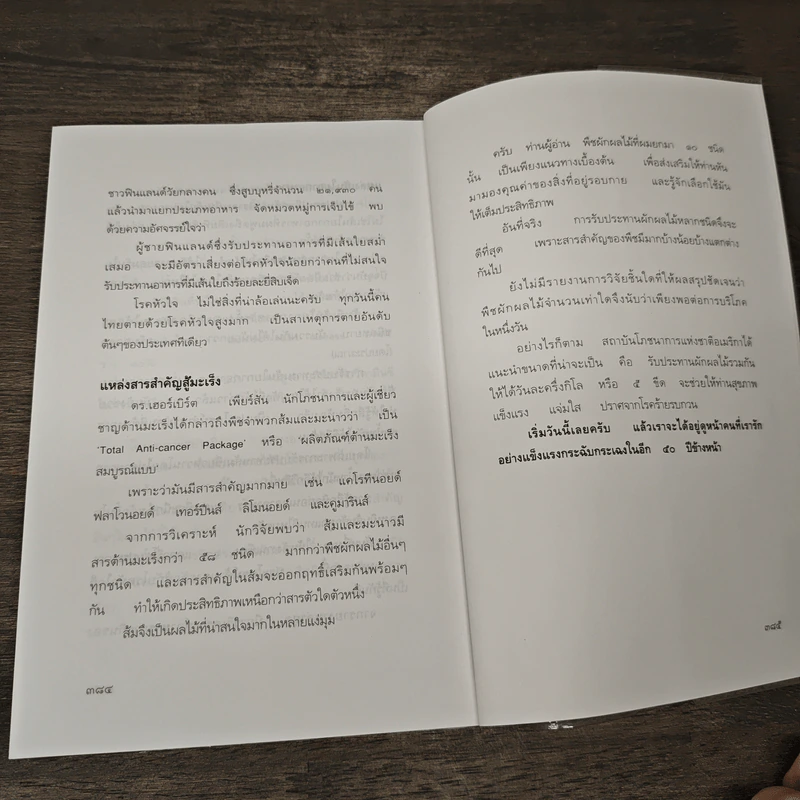 ชาวฟินแลนด์วัยกลางคน ซึ่งสูบบุหรี่จำนวน ๒๑,๙๓๐ คน
แล้วนำมาแยกประเภทอาหาร จัดหมวดหมู่การเจ็บไข้ พบ
ด้วยความอัศจรรย์ใจว่า
ผู้ชายฟินแลนด์ซึ่งรับประทานอาหารที่มีเส้นใยสม่ำ
เสมอ จะมีอัตราเสี่ยงต่อโรคหัวใจน้อยกว่าคนที่ไม่สนใจ
รับประทานอาหารที่มีเส้นใยถึงร้อยละยี่สิบเจ็ด
โรคหัวใจ ไม่ใช่สิ่งที่น่าล้อเล่นนะครับ ทุกวันนี้คน
ไทยตายด้วยโรคหัวใจสูงมาก เป็นสาเหตุการตายอันดับ
ต้นๆของประเทศทีเดียว
แหล่งสารสำคัญสู้มะเร็ง
ดร.เฮอร์เบิร์ต เพียร์สัน นักโภชนาการและผู้เชี่ยว
ชาญด้านมะเร็งได้กล่าวถึงพืชจำพวกส้มและมะนาวว่า เป็น
'Total Anti-cancer Package' หรือ 'ผลิตภัณฑ์ต้านมะเร็ง
สมบูรณ์แบบ'
เพราะว่ามันมีสารสำคัญมากมาย เช่น แคโรทีนอยด์
ฟลาโวนอยด์ เทอร์ปีนส์ ลิโมนอยด์ และคูมารินส์
จากการวิเคราะห์ นักวิจัยพบว่า ส้มและมะนาวมี
สารต้านมะเร็งกว่า ๕๘ ชนิด มากกว่าพืชผักผลไม้อื่นๆ
ทุกชนิด และสารสำคัญในส้มจะออกฤทธิ์เสริมกันพร้อมๆ
กัน ทำให้เกิดประสิทธิภาพเหนือกว่าสารตัวใดตัวหนึ่ง
ส้มจึงเป็นผลไม้ที่น่าสนใจมากในหลายแง่มุม
๓๘๔
ครับ ท่านผู้อ่าน พืชผักผลไม้ที่ผมยกมา ๑๐ ชนิด
นั้น เป็นเพียงแนวทางเบื้องต้น เพื่อส่งเสริมให้ท่านหัน
มามองคุณค่าของสิ่งที่อยู่รอบกาย และรู้จักเลือกใช้มัน
ให้เต็มประสิทธิภาพ
อันที่จริง การรับประทานผักผลไม้หลากชนิดจึงจะ
ดีที่สุด เพราะสารสำคัญของพืชมีมากบ้างน้อยบ้างแตกต่าง
กันไป
ยังไม่มีรายงานการวิจัยชิ้นใดที่ให้ผลสรุปชัดเจนว่า
พืชผักผลไม้จำนวนเท่าใดจึงนับว่าเพียงพอต่อการบริโภค
ในหนึ่งวัน
อย่างไรก็ตาม สถาบันโภชนาการแห่งชาติอเมริกาได้
แนะนำขนาดที่น่าจะเป็น คือ รับประทานผักผลไม้รวมกัน
ให้ได้วันละครึ่งกิโล หรือ ๕ ขีด จะช่วยให้ท่านสุขภาพ
แข็งแรง แจ่มใส ปราศจากโรคร้ายรบกวน
เริ่มวันนี้เลยครับ แล้วเราจะได้อยู่ดูหน้าคนที่เรารัก
อย่างแข็งแรงกระฉับกระเฉงในอีก ๕๐ ปีข้างหน้า
๓๘๕